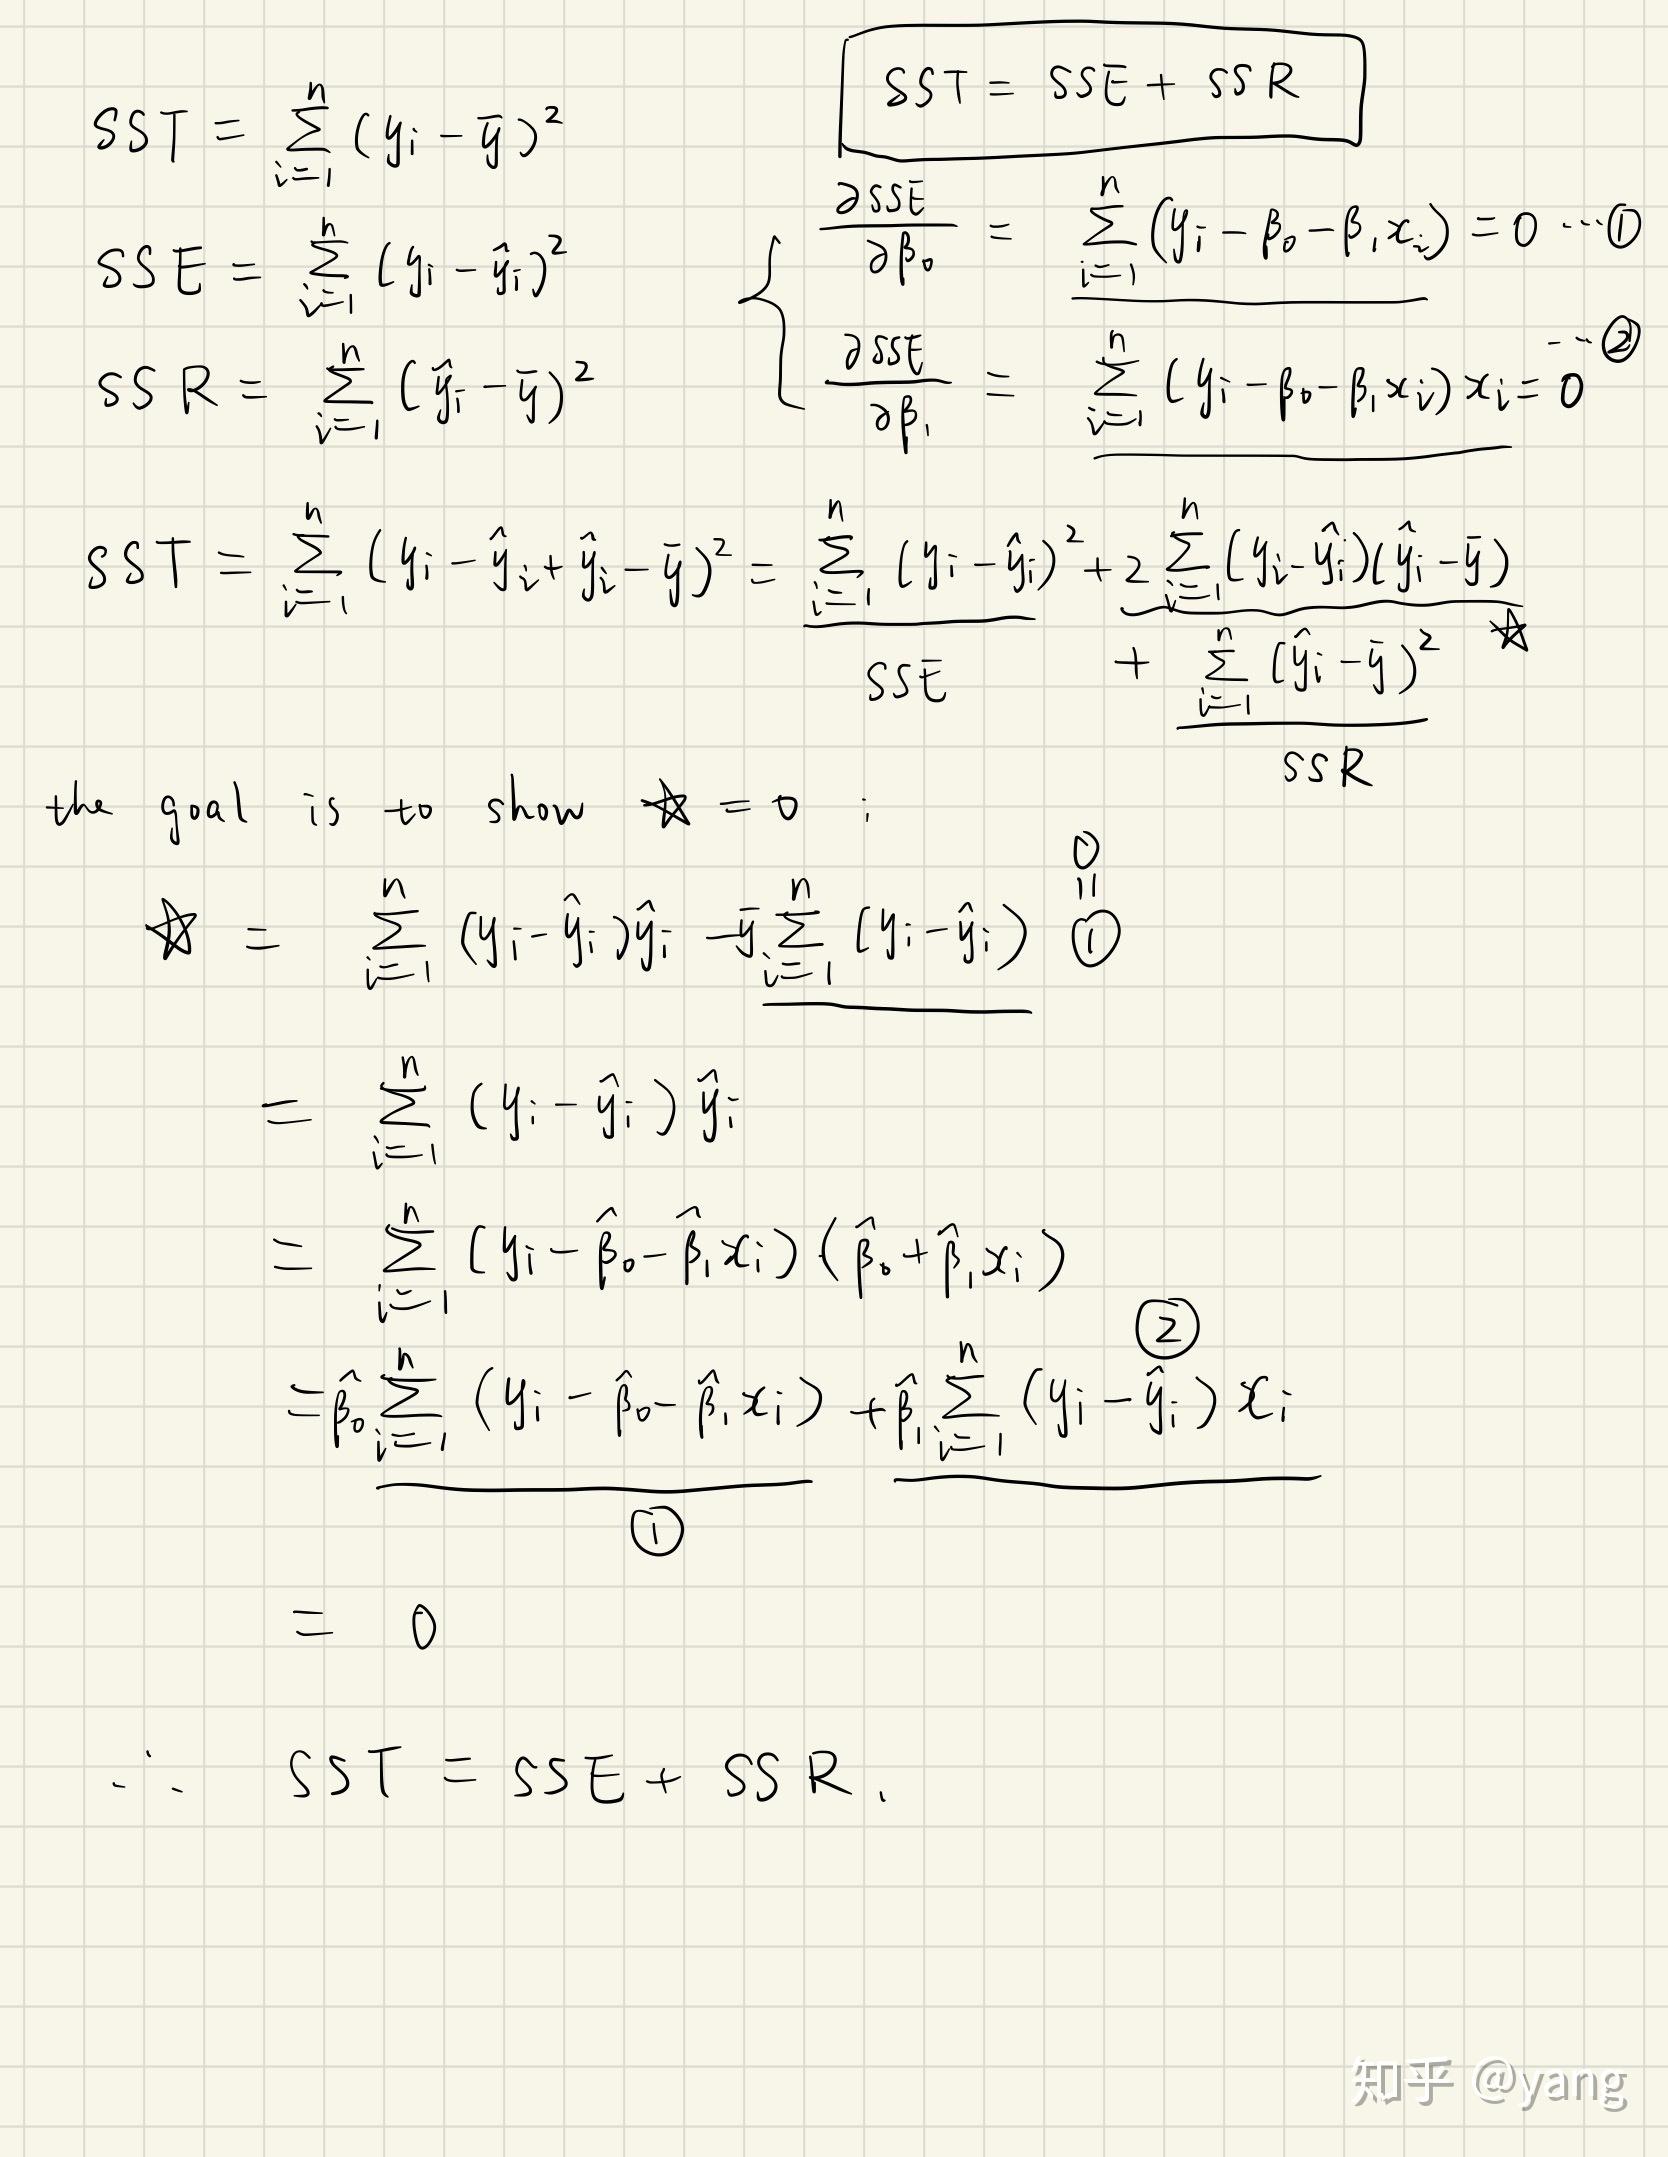 SST = SSE + SSR
SST = ∑_{i=1}^{n} (y_i − ȳ)²
SSE = ∑_{i=1}^{n} (y_i − ŷ_i)²
SSR = ∑_{i=1}^{n} (ŷ_i − ȳ)²
{ ∂SSE/∂β₀ = ∑_{i=1}^{n} (y_i − β₀ − β₁x_i) = 0 ⋯①
∂SSE/∂β₁ = ∑_{i=1}^{n} (y_i − β₀ − β₁x_i) x_i = 0 ⋯②
SST = ∑_{i=1}^{n} (y_i − ŷ_i + ŷ_i − ȳ)² = ∑_{i=1}^{n} (y_i − ŷ_i)² + 2 ∑_{i=1}^{n} (y_i − ŷ_i)(ŷ_i − ȳ) ☆
SSE
+ ∑_{i=1}^{n} (ŷ_i − ȳ)²
SSR
the goal is to show ☆ = 0 :
☆ = ∑_{i=1}^{n} (y_i − ŷ_i)ŷ_i − ȳ ∑_{i=1}^{n} (y_i − ŷ_i) ① = 0
= ∑_{i=1}^{n} (y_i − ŷ_i) ŷ_i
= ∑_{i=1}^{n} (y_i − β̂₀ − β̂₁x_i) (β̂₀ + β̂₁x_i)
= β̂₀ ∑_{i=1}^{n} (y_i − β̂₀ − β̂₁x_i) + β̂₁ ∑_{i=1}^{n} (y_i − ŷ_i) x_i ②
①
= 0
∴ SST = SSE + SSR.
知乎 @yang